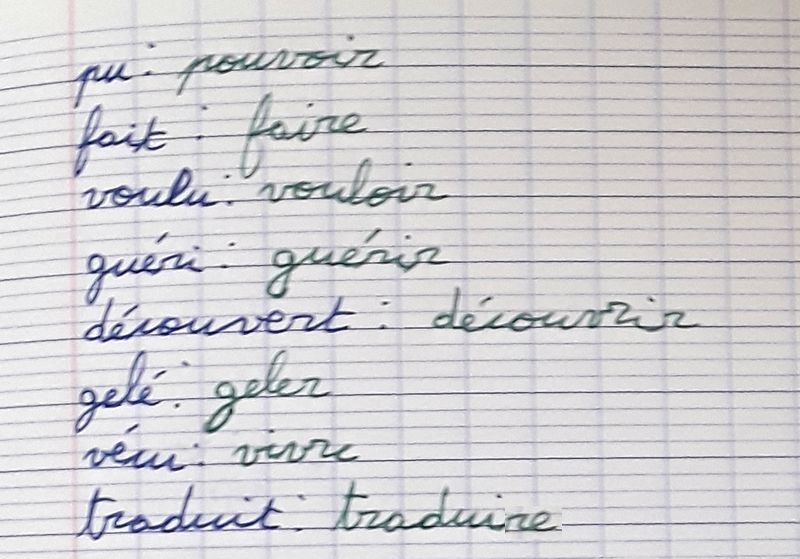 pu : pouvoir
fait : faire
voulu : vouloir
guéri : guérir
découvert : découvrir
gelé : geler
vécu : vivre
traduit : traduire